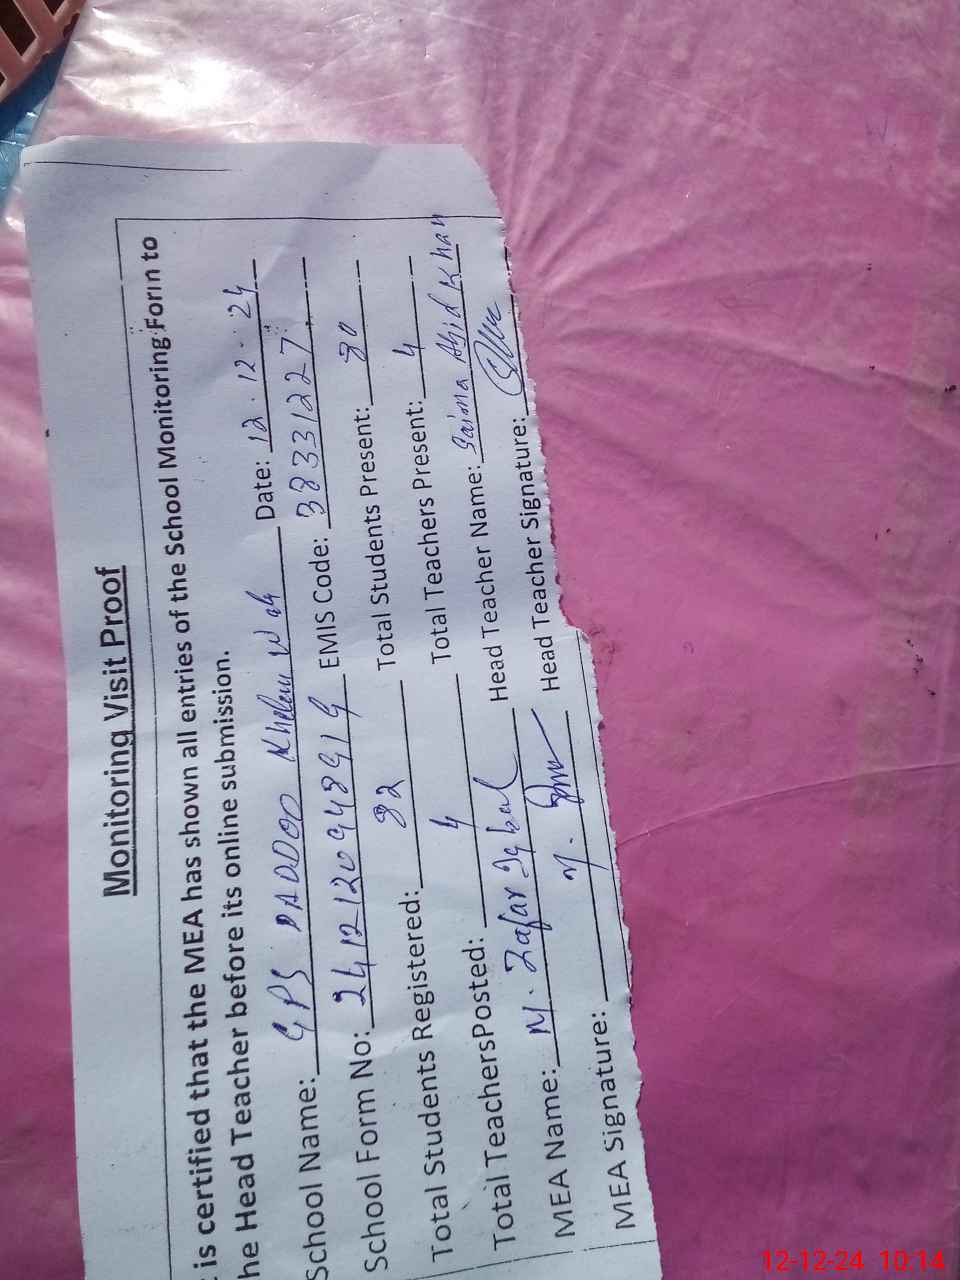 Monitoring Visit Proof
is certified that the MEA has shown all entries of the School Monitoring Form to
he Head Teacher before its online submission.
School Name: GPS DADDOO Khelan Wah Date: 12.12.24
School Form No: 2412120948919 EMIS Code: 38331227
Total Students Registered: 82 Total Students Present: 80
Total TeachersPosted: 4 Total Teachers Present: 4
MEA Name: M. Zafar Iqbal Head Teacher Name: Saima Abid Khan
MEA Signature: Head Teacher Signature:
12-12-24 10:14